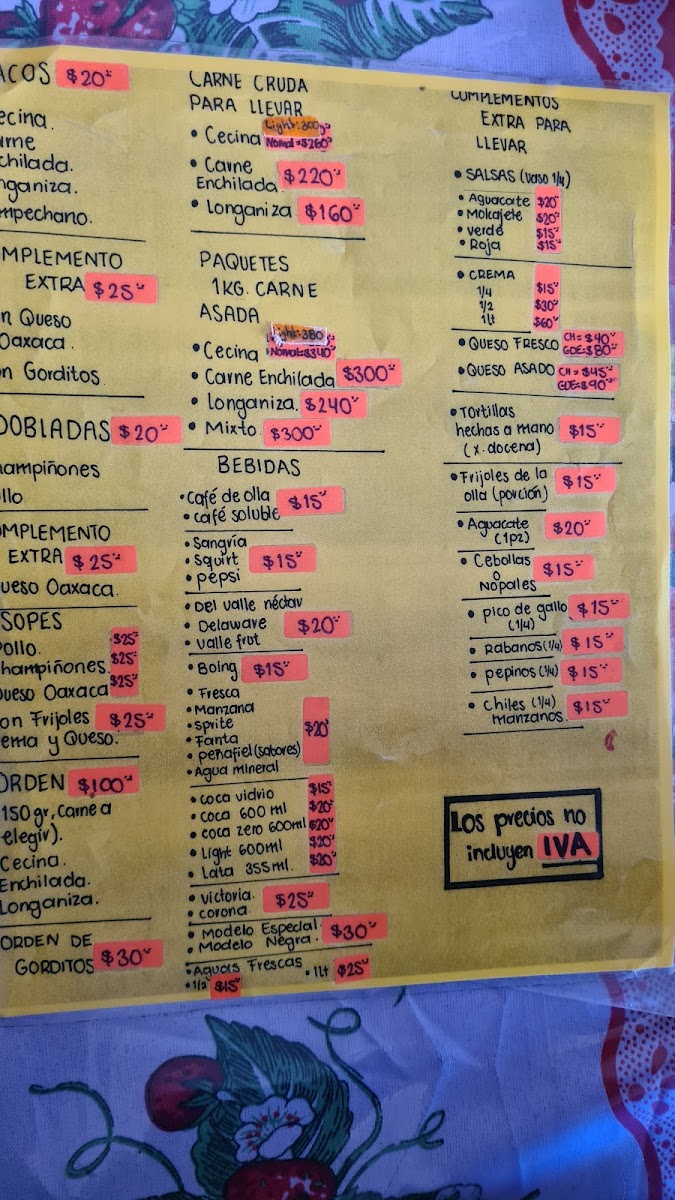 ACOS $20
ecina.
arne
chilada.
nganiza.
mpechano.
OMPLEMENTO
EXTRA $25
n Queso
Oaxaca.
n Gorditos
DOBLADAS $20
hampiñones
llo
OMPLEMENTO
EXTRA $25
ueso Oaxaca.
SOPES
Pollo. $25
hampiñones. $25
Queso Oaxaca $25
on Frijoles $25
ema y Queso.
ORDEN $100
150 gr, Carne a
elegir).
Cecina.
Enchilada.
Longaniza.
ORDEN DE
GORDITOS $30
CARNE CRUDA
PARA LLEVAR
• Cecina Light:300 Normal=$260
• Carne
Enchilada. $220
• Longaniza $160
PAQUETES
1KG. CARNE
ASADA
• Cecina Light:380 Normal:$340
• Carne Enchilada $300
• Longaniza. $240
• Mixto. $300
BEBIDAS
• Café de olla
• café soluble $15
• Sangría
• Squirt $15
• pepsi
• Del valle néctar
• Delaware $20
• valle frut
• Boing $15
• Fresca
• Manzana
• Sprite $20
• Fanta
• peñafiel (sabores)
• Agua mineral
• coca vidrio $15
• coca 600 ml $20
• coca zero 600ml $20
• Light 600ml $20
• Lata 355ml. $20
• victoria. $25
• corona.
• Modelo Especial. $30
• Modelo Negra.
• Aguas Frescas
• 1/2 $15 • 1Lt $25
COMPLEMENTOS
EXTRA PARA
LLEVAR
• SALSAS (vaso 1/4)
• Aguacate $20
• Mokajete $20
• verde $15
• Roja $15
• CREMA
1/4 $15
1/2 $30
1lt $60
• QUESO FRESCO CH=$40 GDE=$80
• QUESO ASADO CH=$45 GDE=$90
• Tortillas
hechas a mano $15
(x. docena)
• Frijoles de la
olla (porción) $15
• Aguacate $20
(1pz)
• Cebollas
o $15
Nopales
• pico de gallo $15
(1/4)
• Rabanos (1/4) $15
• pepinos (1/4) $15
• Chiles (1/4) $15
manzanos.
Los precios no
incluyen IVA